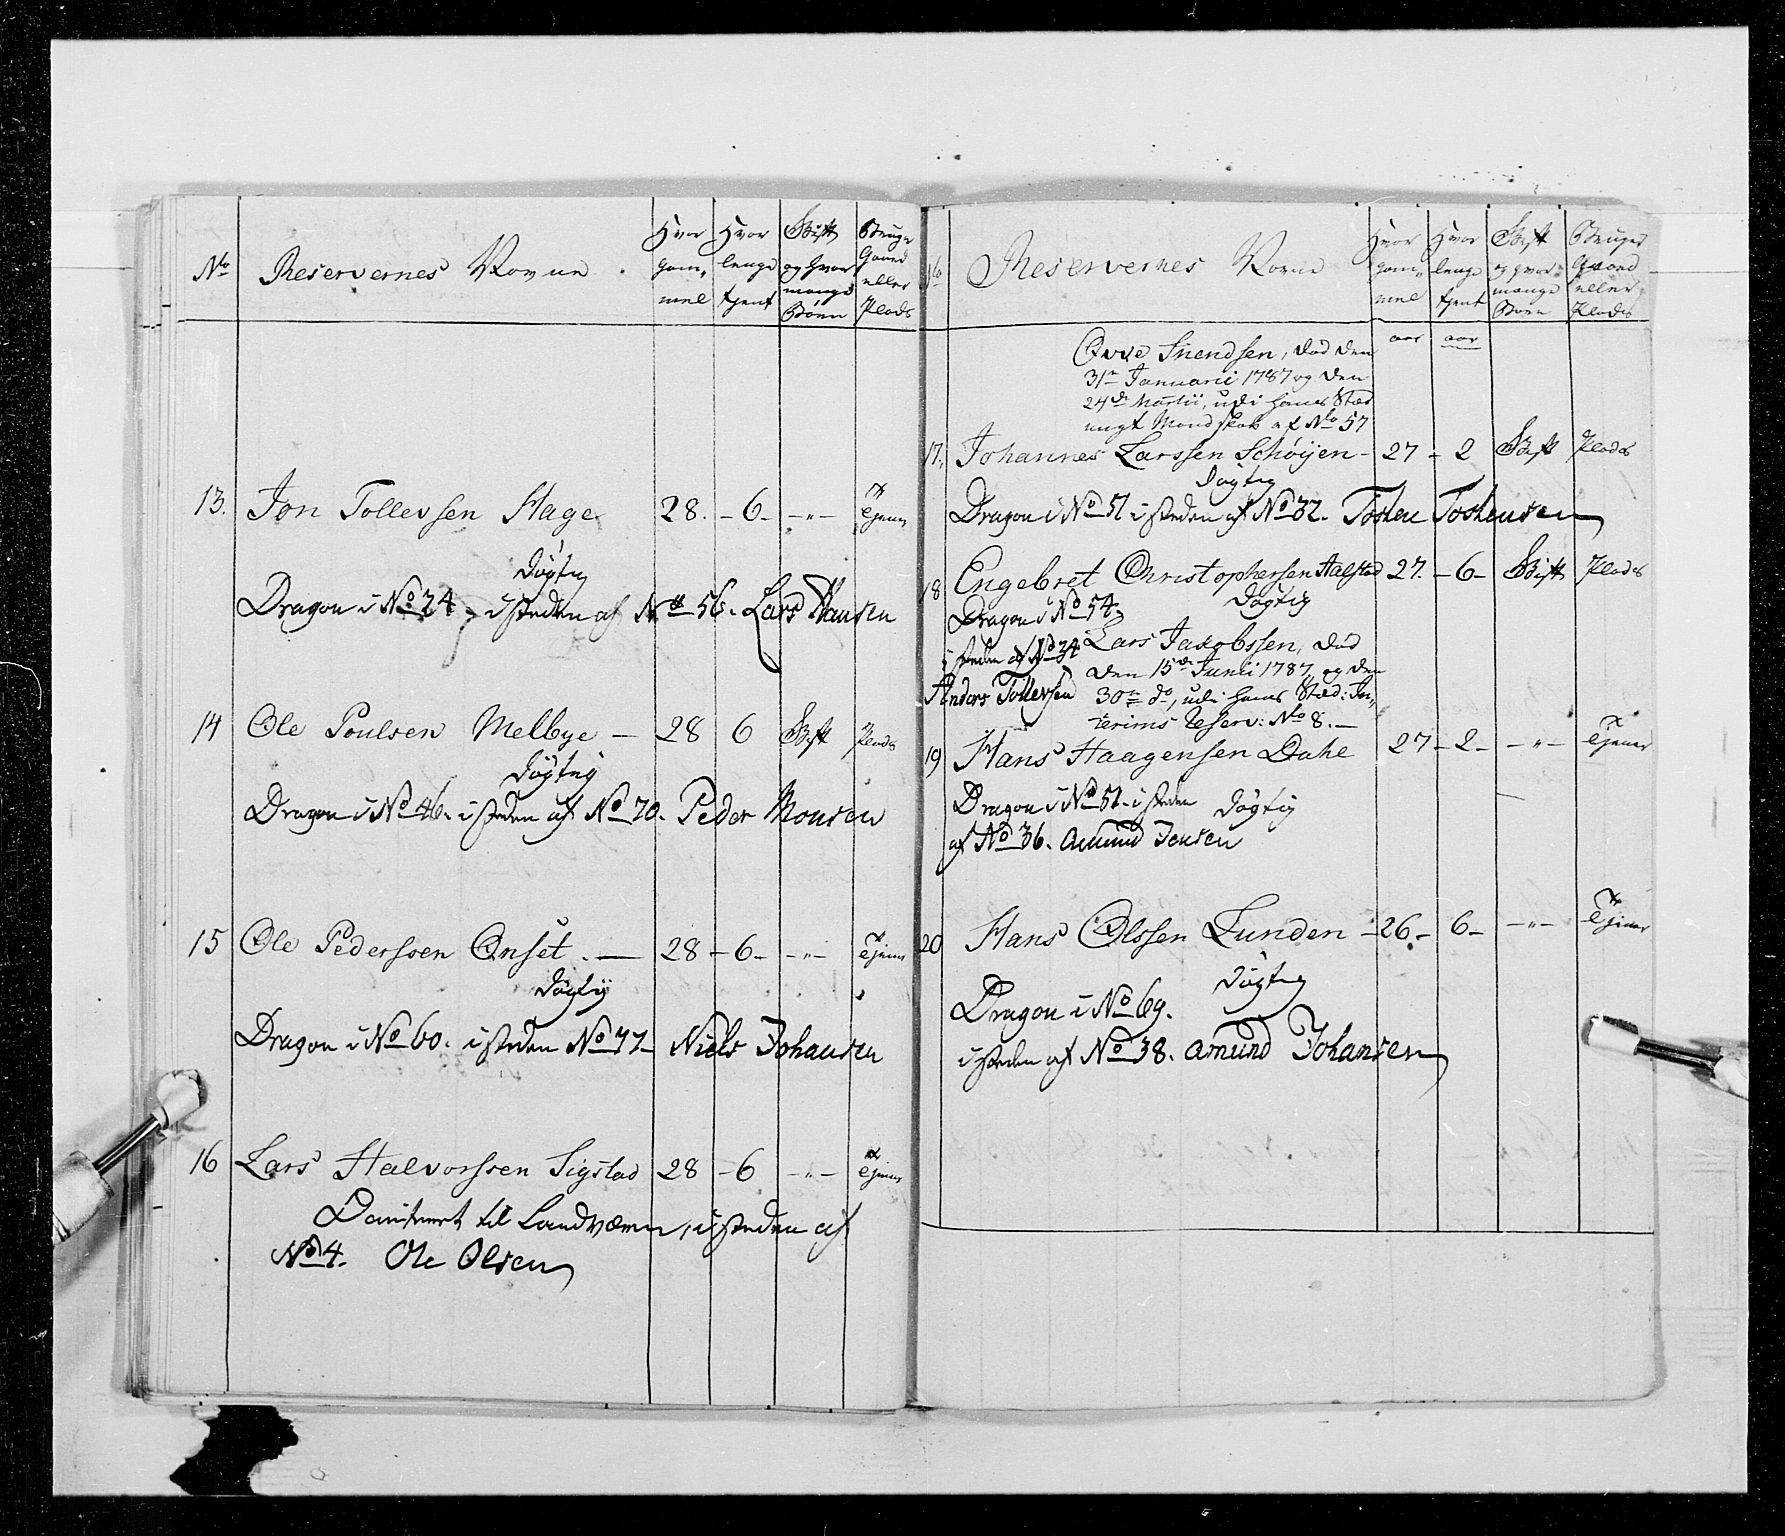 No Reservernes Navne . Hvor gam„ mel Hvor lenge tjent Gift og hvor mange Børn Bruger Gaard eller Plads
13. Jon Tollevssen Hage 28. – 6 – – „ – Tjener
Døgtig
Dragon i No 24, i steden af No 56. Lars Hansen
14 Ole Poulsen Melbye – 28 6 Gift Plads
Døgtig
Dragon i No 46. i steden af No 70. Peder Monsen
15 Ole Pederssen Onset . — 28 – 6 – – „ – Tjener
Døgtig
Dragon i No 60. i steden No 77 – Niels Johansen
16 Lars Halvorssen Sigstad 28 – 6 – „ – Tjener
til Landværn, i steden af
No 4. Ole Olsen
No Reservernes Navne Hvor gam„ mel Hvor lenge tjent Gift og hvor mange Børn Bruger Gaard eller Plads
aar aar
Svendsen, død den
31te Januarii 1787 og den
24de Martii, udi hans Stæd
ungt Mandskab af No 57
17. Johannes Larssen Schøijen – 27 – 2 Gift Plads
Døgtig
Dragon i No 51 i steden af No 32. Tosten Tostensen
18 Engebret Christophersen Aalstad 27. – 6 – Gift Plads
Døgtig
Dragon i No 54.
i steden af No 34
Anders Tollevsen
Lars Jakobssen, død
den 15de Junii 1787, og den
30te do, udi hans Stæd: In„
terims Reserv: No 8. —
19 Hans Haagensen Dahl 27 – 2 – – „ – Tjener
Dragon i No 51. i steden Døgtig
af No 36. Amund Jensen
20 Hans Olssen Lunden – 26. – 6 – – „ – Tjener
Døgtig
Dragon i No 69.
i steden af No 38. Amund Johansen